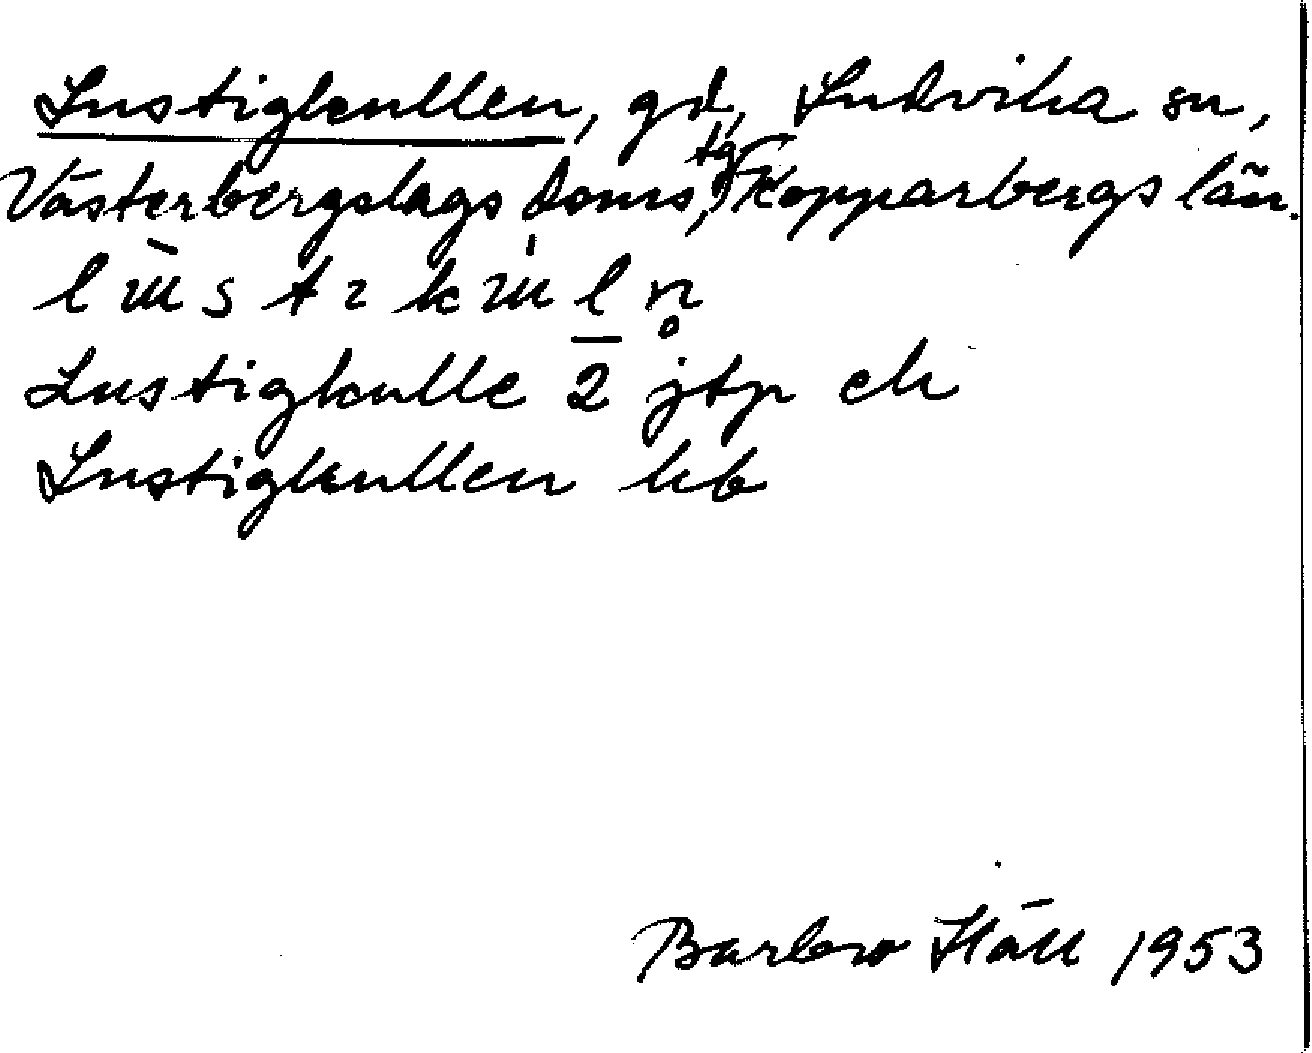 Lustigkullen, gd, Ludvika sn,
Västerbergslags doms,tg Kopparbergs län.
Lustigkulle 2 jtp ek
Lustigkullen kb
Barbro Häll 1953